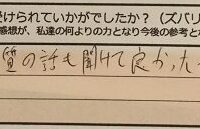 受けられていかがでしたか？（ズバリ
感想が、私達の何よりの力となり今後の参考と
質の話も聞けて良かった